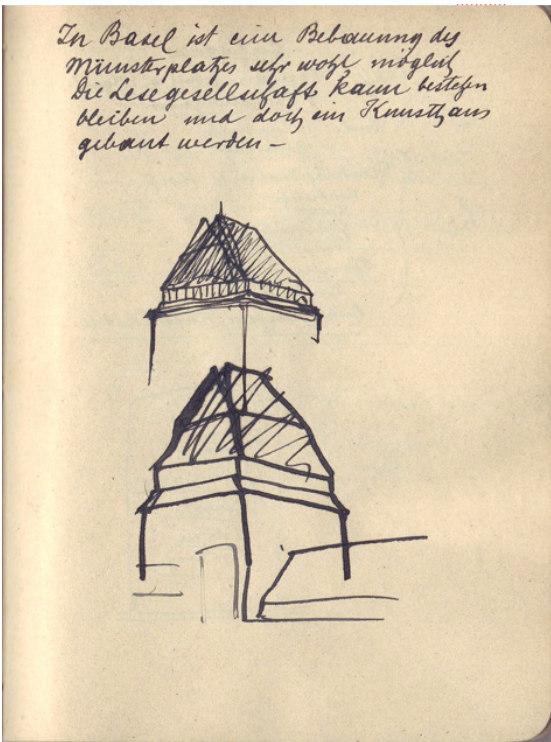 In Basel ist eine Bebauung des
Münsterplatzes sehr wohl möglich
Die Lesegesellschaft kann bestehn
bleiben und doch ein Kunsthaus
gebaut werden –